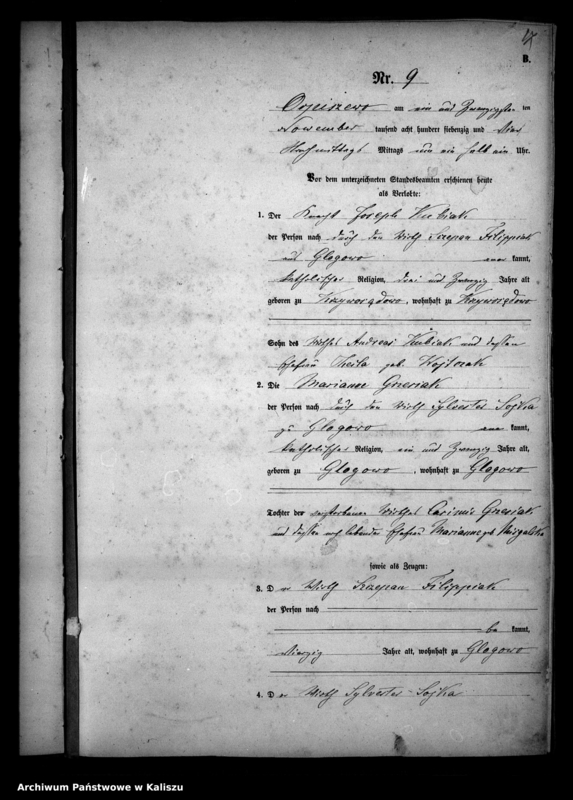 B.
Nr. 9
am ein und Zwanzigsten ten
November tausend acht hundert siebenzig und Vier
Nachmittags Mittags um ein halb ein Uhr.
Vor dem unterzeichneten Standesbeamten erschienen heute
als Verlobte:
1. Der Knecht Joseph Kubiak
der Person nach durch den Wirth Szcepan Filippiak
aus Glogowo kannt,
katholischer Religion, drei und Zwanzig Jahre alt
geboren zu , wohnhaft zu
Sohn des Wirthes Andreas Kubiak und dessen
Ehefrau geb.
2. Die Marianne Gneriak
der Person nach durch den Wirth Sylvester Sojka
zu Glogowo kannt,
katholischer Religion, ein und Zwanzig Jahre alt,
geboren zu Glogowo , wohnhaft zu Glogowo
Tochter des verstorbenen Wirthes Casimir Gneriak
und dessen noch lebenden Ehefrau Marianne geb
sowie als Zeugen:
3. D er Wirth Szcepan Filippiak
der Person nach
be kannt,
Vierzig Jahre alt, wohnhaft zu Glogowo
4. D er Wirth Sylvester Sojka
Archiwum Państwowe w Kaliszu